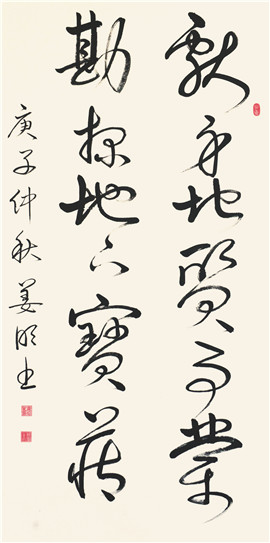 献身地质事業
勘探地下寶藏
庚子仲秋姜明立